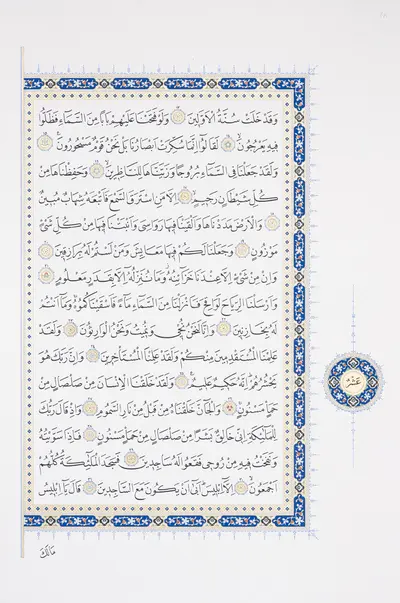 وَقَدْ خَلَتْ سُنَّةُ الْاَوَّلِينَ وَلَوْ فَتَحْنَا عَلَيْهِمْ بَابًا مِنَ السَّمَاءِ فَظَلُّوا
فِيهِ يَعْرُجُونَ لَقَالُوا اِنَّمَا سُكِّرَتْ اَبْصَارُنَا بَلْ نَحْنُ قَوْمٌ مَسْحُورُونَ
وَلَقَدْ جَعَلْنَا فِي السَّمَاءِ بُرُوجًا وَزَيَّنَّاهَا لِلنَّاظِرِينَ وَحَفِظْنَاهَا مِنْ
كُلِّ شَيْطَانٍ رَجِيمٍ اِلَّا مَنِ اسْتَرَقَ السَّمْعَ فَاَتْبَعَهُ شِهَابٌ مُبِينٌ
وَالْاَرْضَ مَدَدْنَاهَا وَاَلْقَيْنَا فِيهَا رَوَاسِيَ وَاَنْبَتْنَا فِيهَا مِنْ كُلِّ شَيْءٍ
مَوْزُونٍ وَجَعَلْنَا لَكُمْ فِيهَا مَعَايِشَ وَمَنْ لَسْتُمْ لَهُ بِرَازِقِينَ
وَاِنْ مِنْ شَيْءٍ اِلَّا عِنْدَنَا خَزَائِنُهُ وَمَا نُنَزِّلُهُ اِلَّا بِقَدَرٍ مَعْلُومٍ
وَاَرْسَلْنَا الرِّيَاحَ لَوَاقِحَ فَاَنْزَلْنَا مِنَ السَّمَاءِ مَاءً فَاَسْقَيْنَاكُمُوهُ وَمَا اَنْتُمْ
لَهُ بِخَازِنِينَ وَاِنَّا لَنَحْنُ نُحْيِي وَنُمِيتُ وَنَحْنُ الْوَارِثُونَ وَلَقَدْ
عَلِمْنَا الْمُسْتَقْدِمِينَ مِنْكُمْ وَلَقَدْ عَلِمْنَا الْمُسْتَأْخِرِينَ وَاِنَّ رَبَّكَ هُوَ
يَحْشُرُهُمْ اِنَّهُ حَكِيمٌ عَلِيمٌ وَلَقَدْ خَلَقْنَا الْاِنْسَانَ مِنْ صَلْصَالٍ مِنْ
حَمَاٍ مَسْنُونٍ وَالْجَانَّ خَلَقْنَاهُ مِنْ قَبْلُ مِنْ نَارِ السَّمُومِ وَاِذْ قَالَ رَبُّكَ
لِلْمَلٰئِكَةِ اِنِّي خَالِقٌ بَشَرًا مِنْ صَلْصَالٍ مِنْ حَمَاٍ مَسْنُونٍ فَاِذَا سَوَّيْتُهُ
وَنَفَخْتُ فِيهِ مِنْ رُوحِي فَقَعُوا لَهُ سَاجِدِينَ فَسَجَدَ الْمَلٰئِكَةُ كُلُّهُمْ
اَجْمَعُونَ اِلَّا اِبْلِيسَ اَبَى اَنْ يَكُونَ مَعَ السَّاجِدِينَ قَالَ يَا اِبْلِيسُ
عَشْر
مَالَكَ